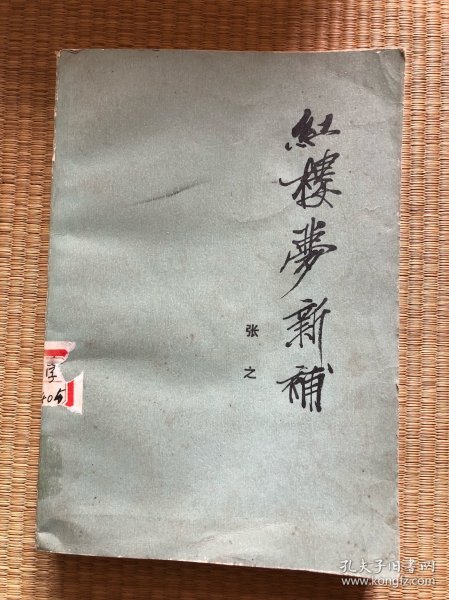 紅樓夢新補
张之
字
405
孔夫子旧书网
www.kongfz.com